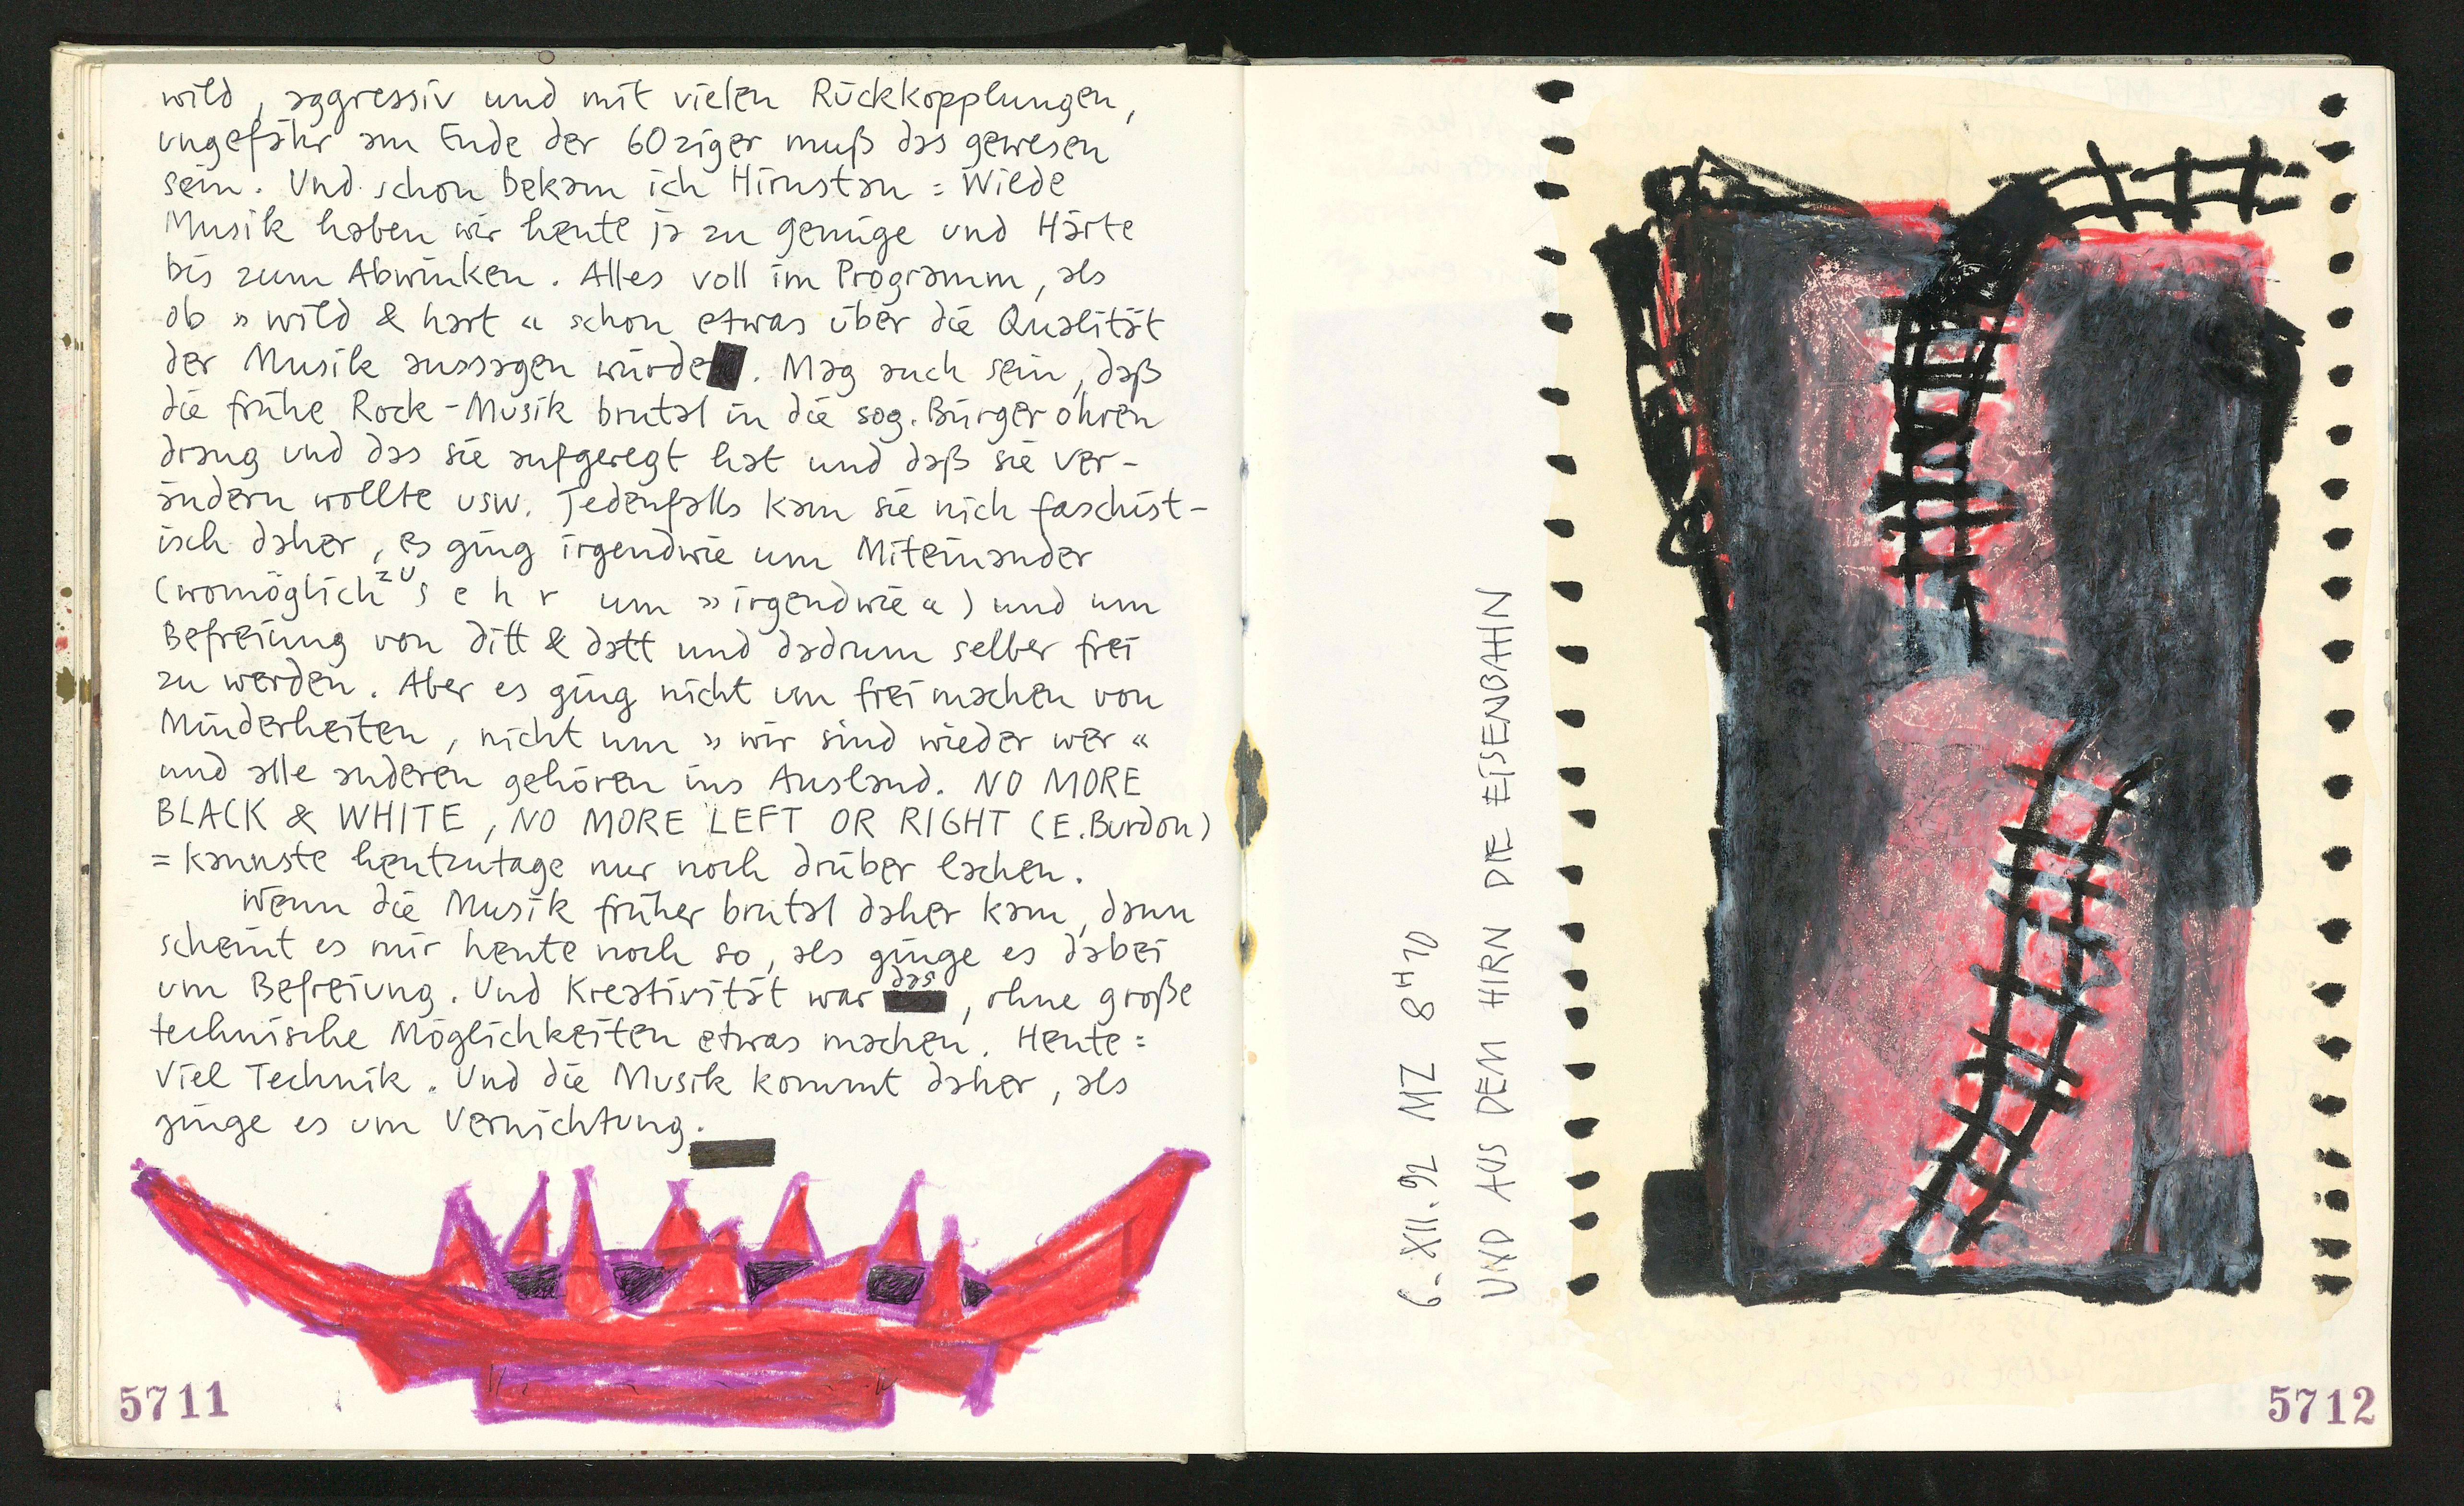 wild, aggressiv und mit vielen Rückkopplungen,
ungefähr am Ende der 60ziger muß das gewesen
sein. Und schon bekam ich Hirnstau = Wilde
Musik haben wir heute ja zu genüge und Härte
bis zum Abwinken. Alles voll im Programm, als
ob » wild & hart « schon etwas über die Qualität
der Musik aussagen würde. Mag auch sein, daß
die frühe Rock-Musik brutal in die sog. Bürgerohren
drang und das sie aufgeregt hat und daß sie ver-
ändern wollte usw. Jedenfalls kam sie nich faschist-
isch daher, es ging irgendwie um Miteinander
(womöglich zu s e h r um » irgendwie «) und um
Befreiung von ditt & datt und dadrum selber frei
zu werden. Aber es ging nicht um frei machen von
Minderheiten, nicht um » wir sind wieder wer «
und alle anderen gehören ins Ausland. NO MORE
BLACK & WHITE, NO MORE LEFT OR RIGHT (E. Burdon)
= kannste heutzutage nur noch drüber lachen.
Wenn die Musik früher brutal daher kam, dann
scheint es mir heute noch so, als ginge es dabei
um Befreiung. Und Kreativität war das, ohne große
technische Möglichkeiten etwas machen. Heute =
Viel Technik. Und die Musik kommt daher, als
ginge es um Vernichtung.
5711
6. XII. 92 MZ 8H10
UND AUS DEM HIRN DIE EISENBAHN
5712